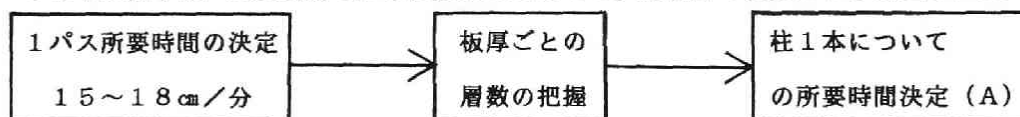 1パス所要時間の決定
15~18㎝/分
板厚ごとの
層数の把握
柱1本について
の所要時間決定(A)